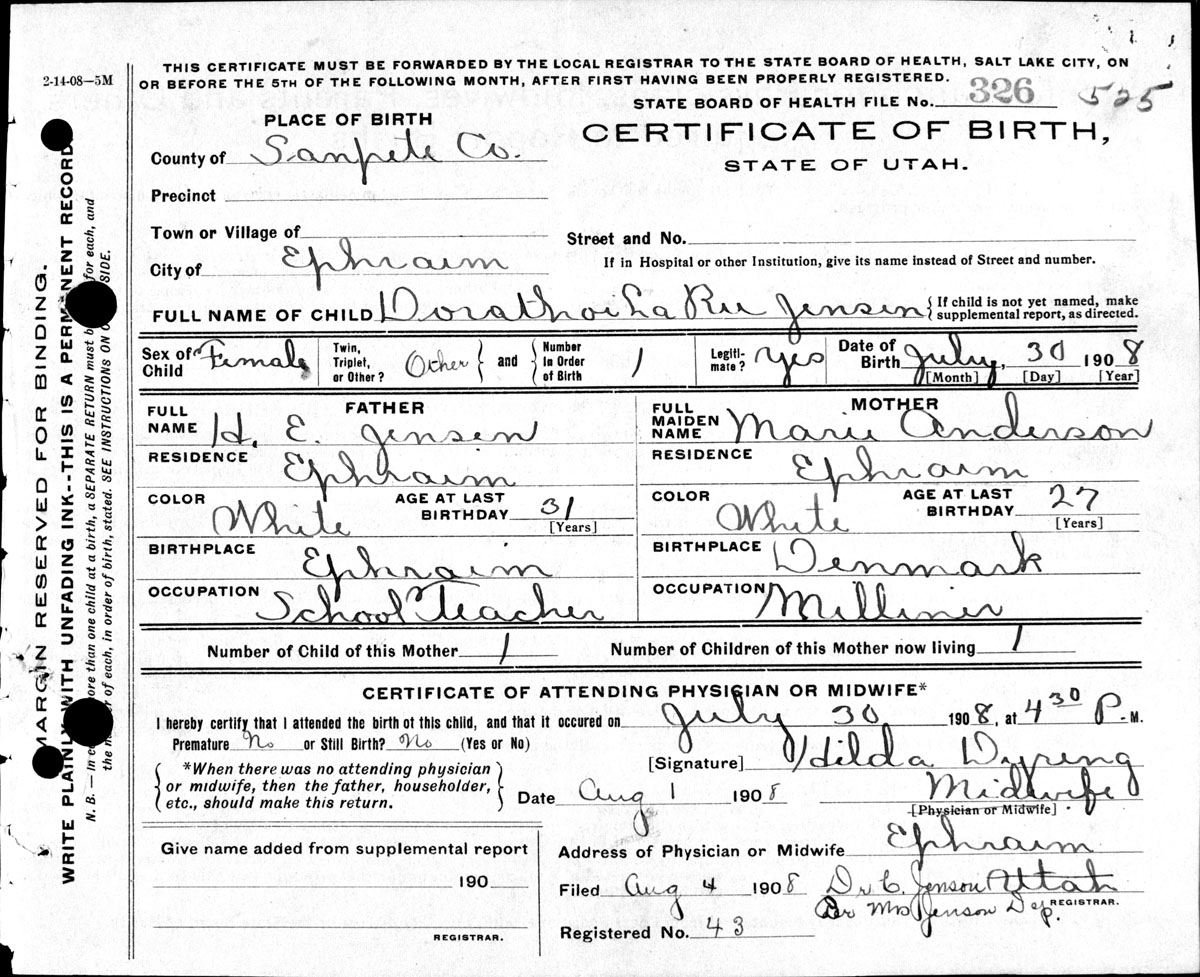 2-14-08—5M
THIS CERTIFICATE MUST BE FORWARDED BY THE LOCAL REGISTRAR TO THE STATE BOARD OF HEALTH, SALT LAKE CITY, ON
OR BEFORE THE 5TH OF THE FOLLOWING MONTH, AFTER FIRST HAVING BEEN PROPERLY REGISTERED.
STATE BOARD OF HEALTH FILE No. 326 525
PLACE OF BIRTH
CERTIFICATE OF BIRTH,
STATE OF UTAH.
County of Sanpete Co.
Precinct
Town or Village of
Street and No.
City of Ephraim
If in Hospital or other Institution, give its name instead of Street and number.
FULL NAME OF CHILD La Rue Jensen {If child is not yet named, make
supplemental report, as directed.
Sex of Child Female Twin, Triplet, or Other? Other and Number in Order of Birth 1 Legiti-mate? Yes Date of Birth July, 30 1908
[Month] [Day] [Year]
FATHER
FULL NAME H. E. Jensen
RESIDENCE Ephraim
COLOR White AGE AT LAST BIRTHDAY 31 [Years]
BIRTHPLACE Ephraim
OCCUPATION School Teacher
MOTHER
FULL MAIDEN NAME Marie Anderson
RESIDENCE Ephraim
COLOR White AGE AT LAST BIRTHDAY 27 [Years]
BIRTHPLACE Denmark
OCCUPATION Milliner
Number of Child of this Mother 1 Number of Children of this Mother now living 1
CERTIFICATE OF ATTENDING PHYSICIAN OR MIDWIFE*
I hereby certify that I attended the birth of this child, and that it occured on July 30 1908, at 4 30 P.M.
Premature No or Still Birth? No (Yes or No)
[Signature] Hilda Dyreng
{*When there was no attending physician
or midwife, then the father, householder,
etc., should make this return.}
Date Aug 1 1908 Midwife
[Physician or Midwife]
Give name added from supplemental report
190
REGISTRAR.
Address of Physician or Midwife Ephraim
Utah
Filed Aug 4 1908 Dr C. Jenson
REGISTRAR.
Per Mrs Jenson Dep.
Registered No. 43
MARGIN RESERVED FOR BINDING.
WRITE PLAINLY WITH UNFADING INK--THIS IS A PERMANENT RECORD
N. B. — In ore than one child at a birth, a SEPARATE RETURN must b for each, and
the of each, in order of birth, stated. SEE INSTRUCTIONS ON SIDE.